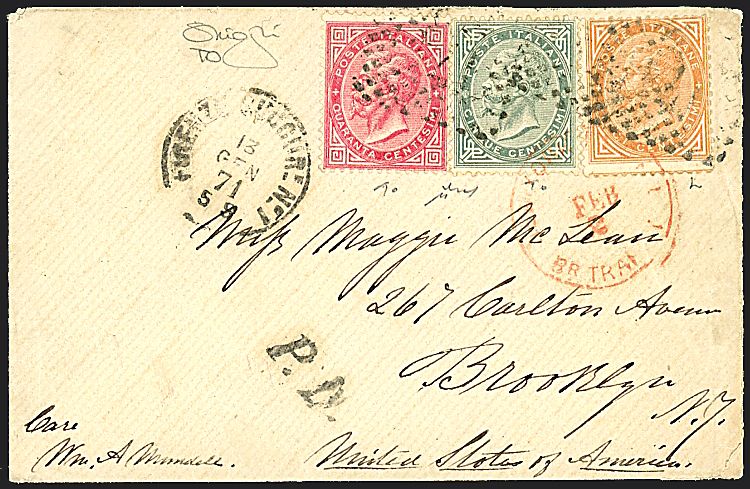 TO
POSTE ITALIANE
QUARANTA CENTESIMI
POSTE ITALIANE
CINQUE CENTESIMI
ITALIANE
CENTESIMI
FIRENZE
13
GEN
71
5 S
FEB
6
BR TRAN
To To
Miss Maggie McLean
267 Carlton Avenue
Brooklyn
N.Y.
P.D.
Care
Wm. A Mundell.
United States of America.